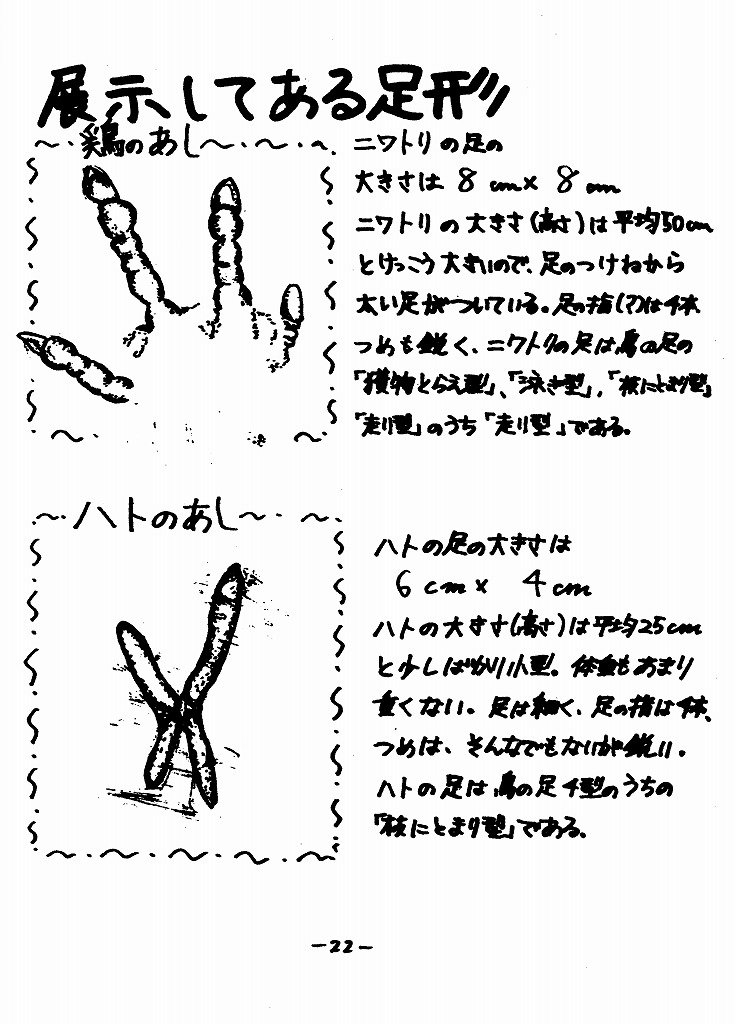 展示してある足形
鶏のあし
ニワトリの足の
大きさは 8cm×8cm
ニワトリの大きさ(高さ)は平均50cm
とけっこう大きいので、足のつけねから
太い足がついている。足の指(?)は4本
つめも鋭く、ニワトリの足は鳥の足の
「獲物とらえ型」、「泳ぎ型」、「枝にとまり型」
「走り型」のうち「走り型」である。
ハトのあし
ハトの足の大きさは
6cm× 4cm
ハトの大きさ(高さ)は平均25cm
と少しばかり小型。体重もあまり
重くない。足は細く、足の指は4本、
つめは、そんなでもないが鋭い。
ハトの足は鳥の足4型のうちの
「枝にとまり型」である。
-22-